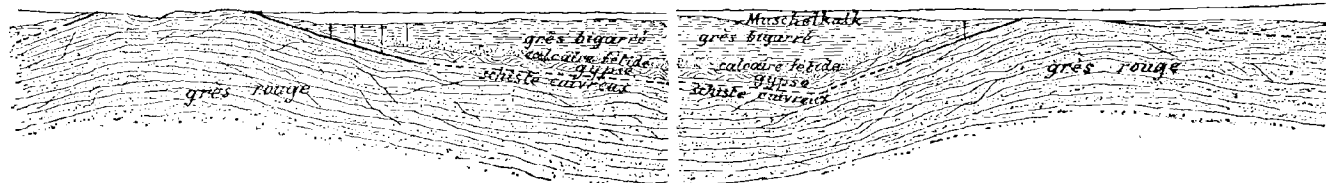 grès bigarré
calcaire fétide
gypse
schiste cuivreux
grès rouge
Muschelkalk
grès bigarré
calcaire fétide
gypse
schiste cuivreux
grès rouge